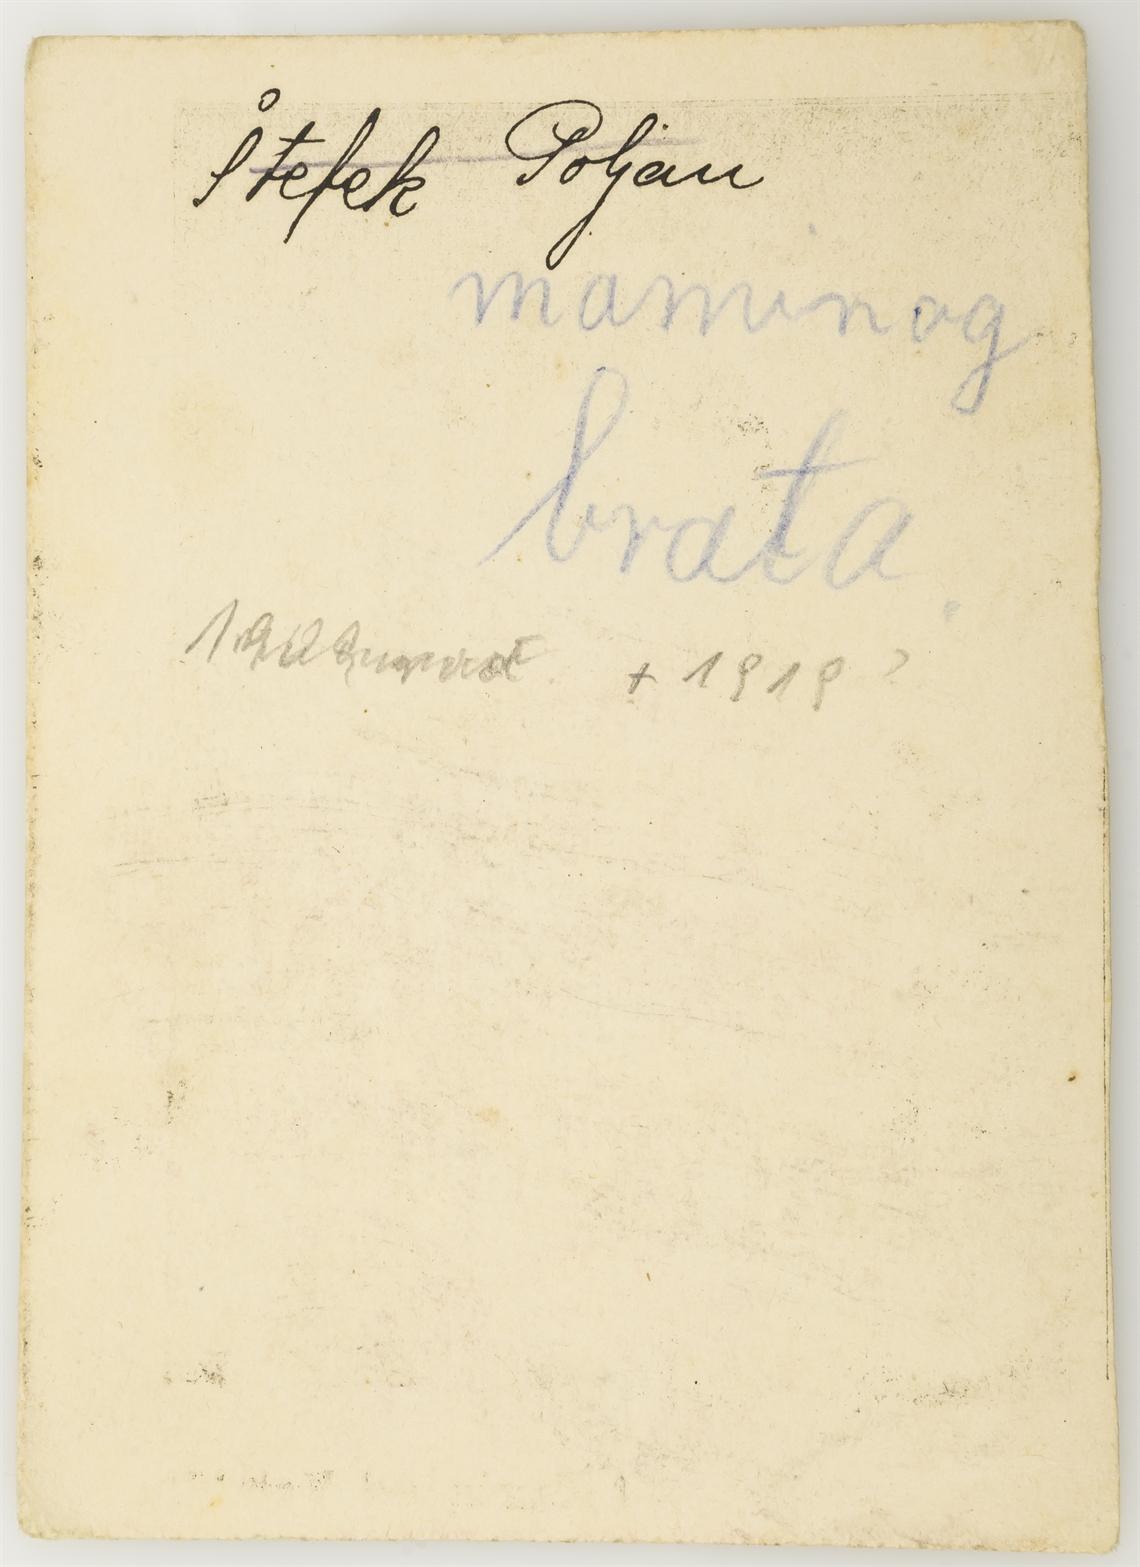 Štefek Poljan
maminog
brata.
+ 1919 ?